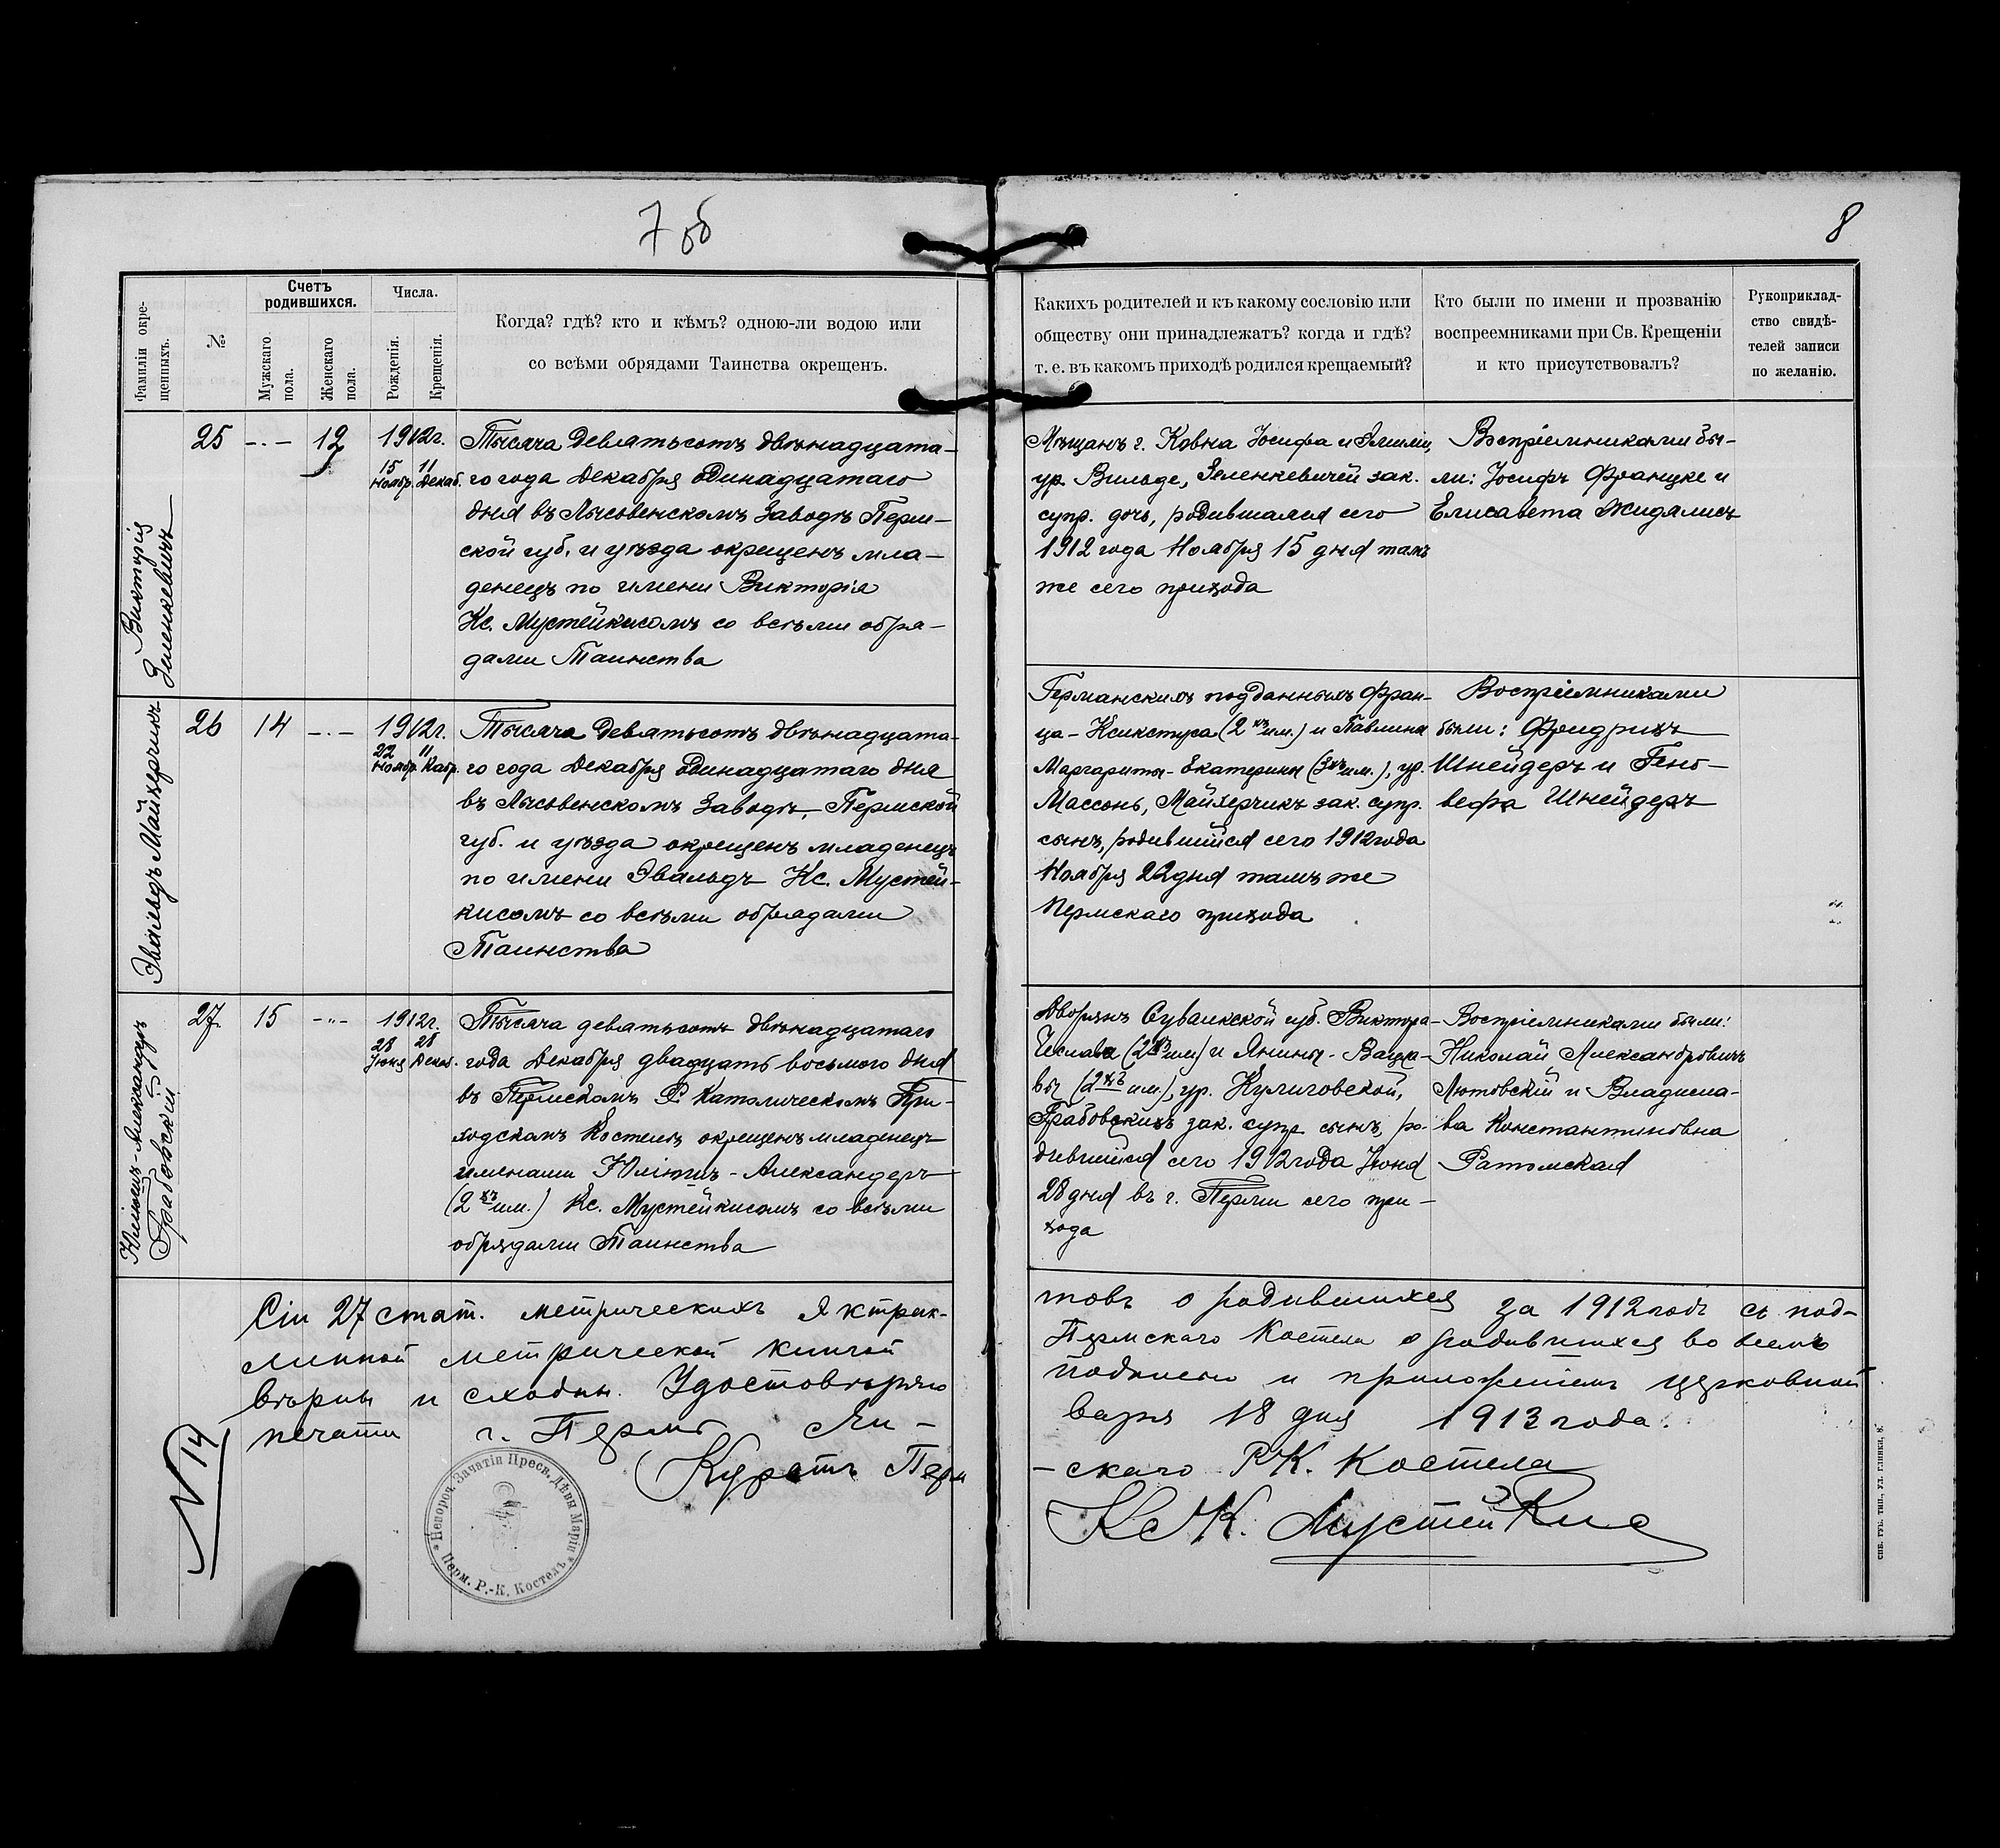 7 об
8
Фамиліи окре-
щенныхъ.
№
Счетъ
родившихся.
Мужскаго
пола.
Женскаго
пола.
Числа.
Рожденія.
Крещенія.
Когда? гдѣ? кто и кѣмъ? одною-ли водою или
со всѣми обрядами Таинства окрещенъ.
Какихъ родителей и къ какому сословію или
обществу они принадлежатъ? когда и гдѣ?
т. е. въ какомъ приходѣ родился крещаемый?
Кто были по имени и прозванію
воспреемниками при Св. Крещеніи
и кто присутствовалъ?
Рукоприклад-
ство свидѣ-
телей записи
по желанію.
Викторія
Зеленкевичъ
25
-.-
12
1912г.
15 Ноябр.
11 Декаб.
Тысяча Девятьсотъ двѣнадцата-
го года Декабря Одинадцатаго
дня въ Лысьвенскомъ Заводѣ Перм-
ской губ. и уѣзда окрещенъ мла-
денецъ по имени Викторія
Кс. Мустейкисомъ со всѣми обря-
дами Таинства
Мѣщанъ г. Ковна Іосифа и Эмиліи,
ур. Вильде, Зеленкевичей зак.
супр. дочь, родившаяся сего
1912 года Ноября 15 дня тамъ
же сего прихода
Воспріемниками бы-
ли: Іосифъ Францке и
Елисавета Жидялисъ
Эвальдъ Майхерчикъ
26
14
-.-
1912г.
22 Ноябр.
11 Кабр.
Тысяча Девятьсотъ двѣнадцата-
го года Декабря Одинадцатаго дня
въ Лысьвенскомъ Заводѣ, Пермской
губ. и уѣзда окрещенъ младенецъ
по имени Эвальдъ Кс. Мустей-
кисомъ со всѣми обрядами
Таинства
Германскихъ подданныхъ Фран-
ца-Ксикстуса (2хъ им.) и Павлины
Маргариты-Екатерины (3хъ им.), ур.
Массонъ, Майхерчикъ зак. супр.
сынъ, родившійся сего 1912 года
Ноября 22 дня тамъ же
Пермскаго прихода
Воспріемниками
были: Фридрихъ
Шнейдеръ и Гено-
вефа Шнейдеръ
Юліюшъ-Александръ
Грабовскій
27.
15
-"-
1912г.
28 Іюня
28 Декаб.
Тысяча девятьсотъ двѣнадцатаго
года Декабря двадцать восьмого дня
въ Пермскомъ Р. Католическомъ При-
ходскомъ Костелѣ окрещенъ младенецъ
именами Юліюшъ-Александеръ
(2хъ им.) Кс. Мустейкисомъ со всѣми
обрядами Таинства
Дворянъ Сувалкской губ. Виктора-
Чеслава (2хъ им) и Янины-Вацла-
вы (2хъ им.), ур. Кулиговской,
Грабовскихъ зак. супр. сынъ, ро-
дившійся сего 1912 года Іюня
28 дня въ г. Перми сего при-
хода
Воспріемниками были:
Николай Александровичъ
Лютовскій и Владисла-
ва Константиновна
Ратомская
Сіи 27 стат. метрическихъ Экстрак-
товъ о родившихся за 1912 годъ съ под-
линной метрической книгой
Пермскаго Костела о родившихся во всемъ
вѣрны и сходны. Удостовѣряю
подписью и приложеніемъ церковной
печати г. Пермь Ян-
варя 18 дня 1913 года.
Куратъ Перм
-скаго Р.К. Костела
Кс К. Мустейкис
N 14
* Непороч. Зачатія Пресв. Дѣвы Маріи *
Перм. Р.-К. Костелъ
СПБ. ГУБ. ТИП., УЛ. ГЛИНКИ, 8.